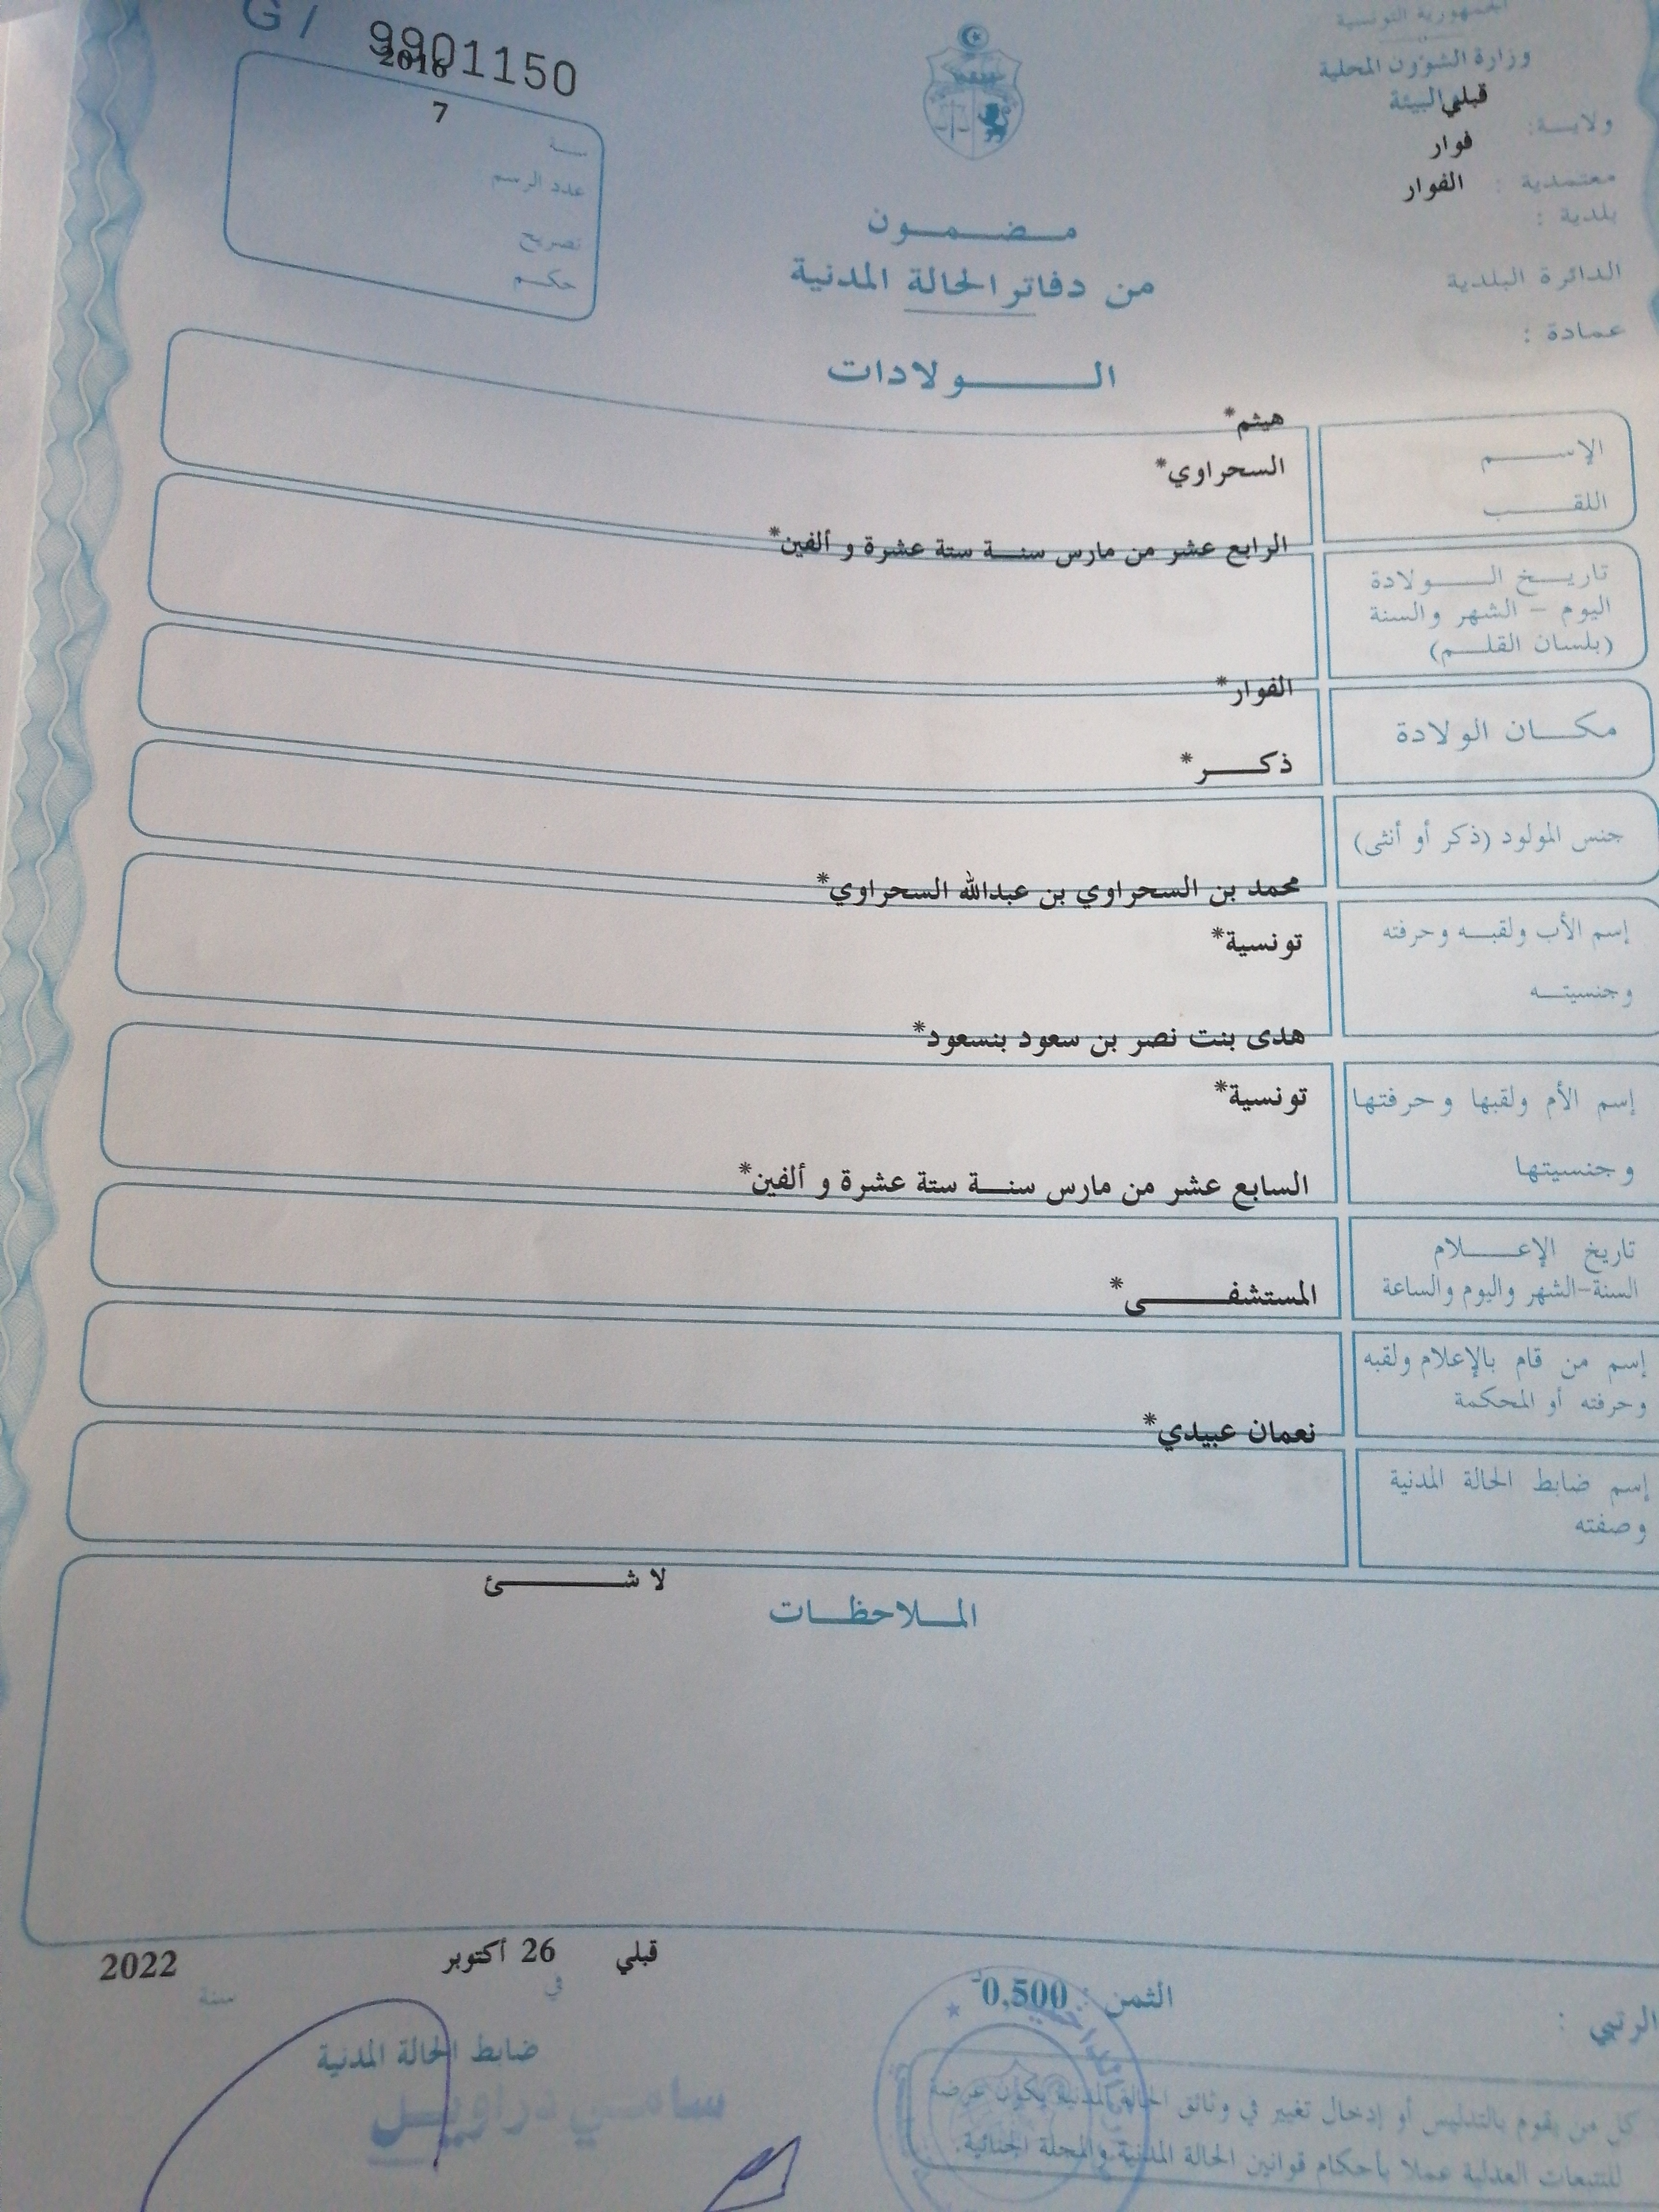 G/ 9901150
2016
7
سنة
عدد الرسم
تصريح
حكم
الجمهورية التونسية
وزارة الشؤون المحلية
والبيئة
قبلي
ولاية:
فوار
معتمدية :
الفوار
بلدية :
الدائرة البلدية
عمادة :
مضمون
من دفاتر الحالة المدنية
الولادات
هيثم*
الإسم
السحراوي*
اللقب
الرابع عشر من مارس سنة ستة عشرة و ألفين*
تاريخ الولادة
اليوم – الشهر والسنة
(بلسان القلم)
الفوار*
مكان الولادة
ذكر*
جنس المولود (ذكر أو أنثى)
محمد بن السحراوي بن عبدالله السحراوي*
إسم الأب ولقبه وحرفته
تونسية*
وجنسيته
هدى بنت نصر بن سعود بنسعود*
إسم الأم ولقبها وحرفتها
تونسية*
وجنسيتها
السابع عشر من مارس سنة ستة عشرة و ألفين*
تاريخ الإعلام
السنة-الشهر واليوم والساعة
المستشفى*
إسم من قام بالإعلام ولقبه
وحرفته أو المحكمة
نعمان عبيدي*
إسم ضابط الحالة المدنية
وصفته
لا شئ
الملاحظات
قبلي 26 أكتوبر 2022
في سنة
الثمن : 0,500
الرتبي :
ضابط الحالة المدنية
سامي دراويل
كل من يقوم بالتدليس أو إدخال تغيير في وثائق الحالة المدنية يكون عرضة
للتتبعات العدلية عملا بأحكام قوانين الحالة المدنية والمجلة الجنائية.